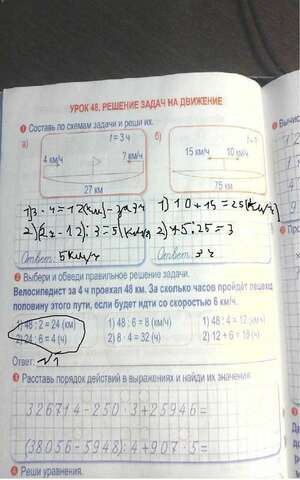 УРОК 48. РЕШЕНИЕ ЗАДАЧ НА ДВИЖЕНИЕ
1 Составь по схемам задачи и реши их.
а) t = 3 ч б)
4 км/ч ? км/ч 15 км/ч 10 км/ч
27 км 75 км
1) 3 · 4 = 12 (км) - за 3 ч 1) 10 + 15 = 25 (км/ч)
2) (27 - 12) : 3 = 5 (км/ч) 2) 75 : 25 = 3
Ответ: 5 км/ч Ответ: 3 ч
2 Выбери и обведи правильное решение задачи.
Велосипедист за 4 ч проехал 48 км. За сколько часов пройдёт пешеход
половину этого пути, если будет идти со скоростью 6 км/ч.
1) 48 : 2 = 24 (км) 1) 48 : 6 = 8 (км/ч) 1) 48 : 4 = 12 (км/ч)
2) 24 : 6 = 4 (ч) 2) 8 · 4 = 32 (ч) 2) 12 + 6 = 18 (ч)
Ответ: √1
3 Расставь порядок действий в выражениях и найди их значения.
326714 - 250 · 3 + 25946 =
(38056 - 5948) : 4 + 907 · 5 =
4 Реши уравнения.